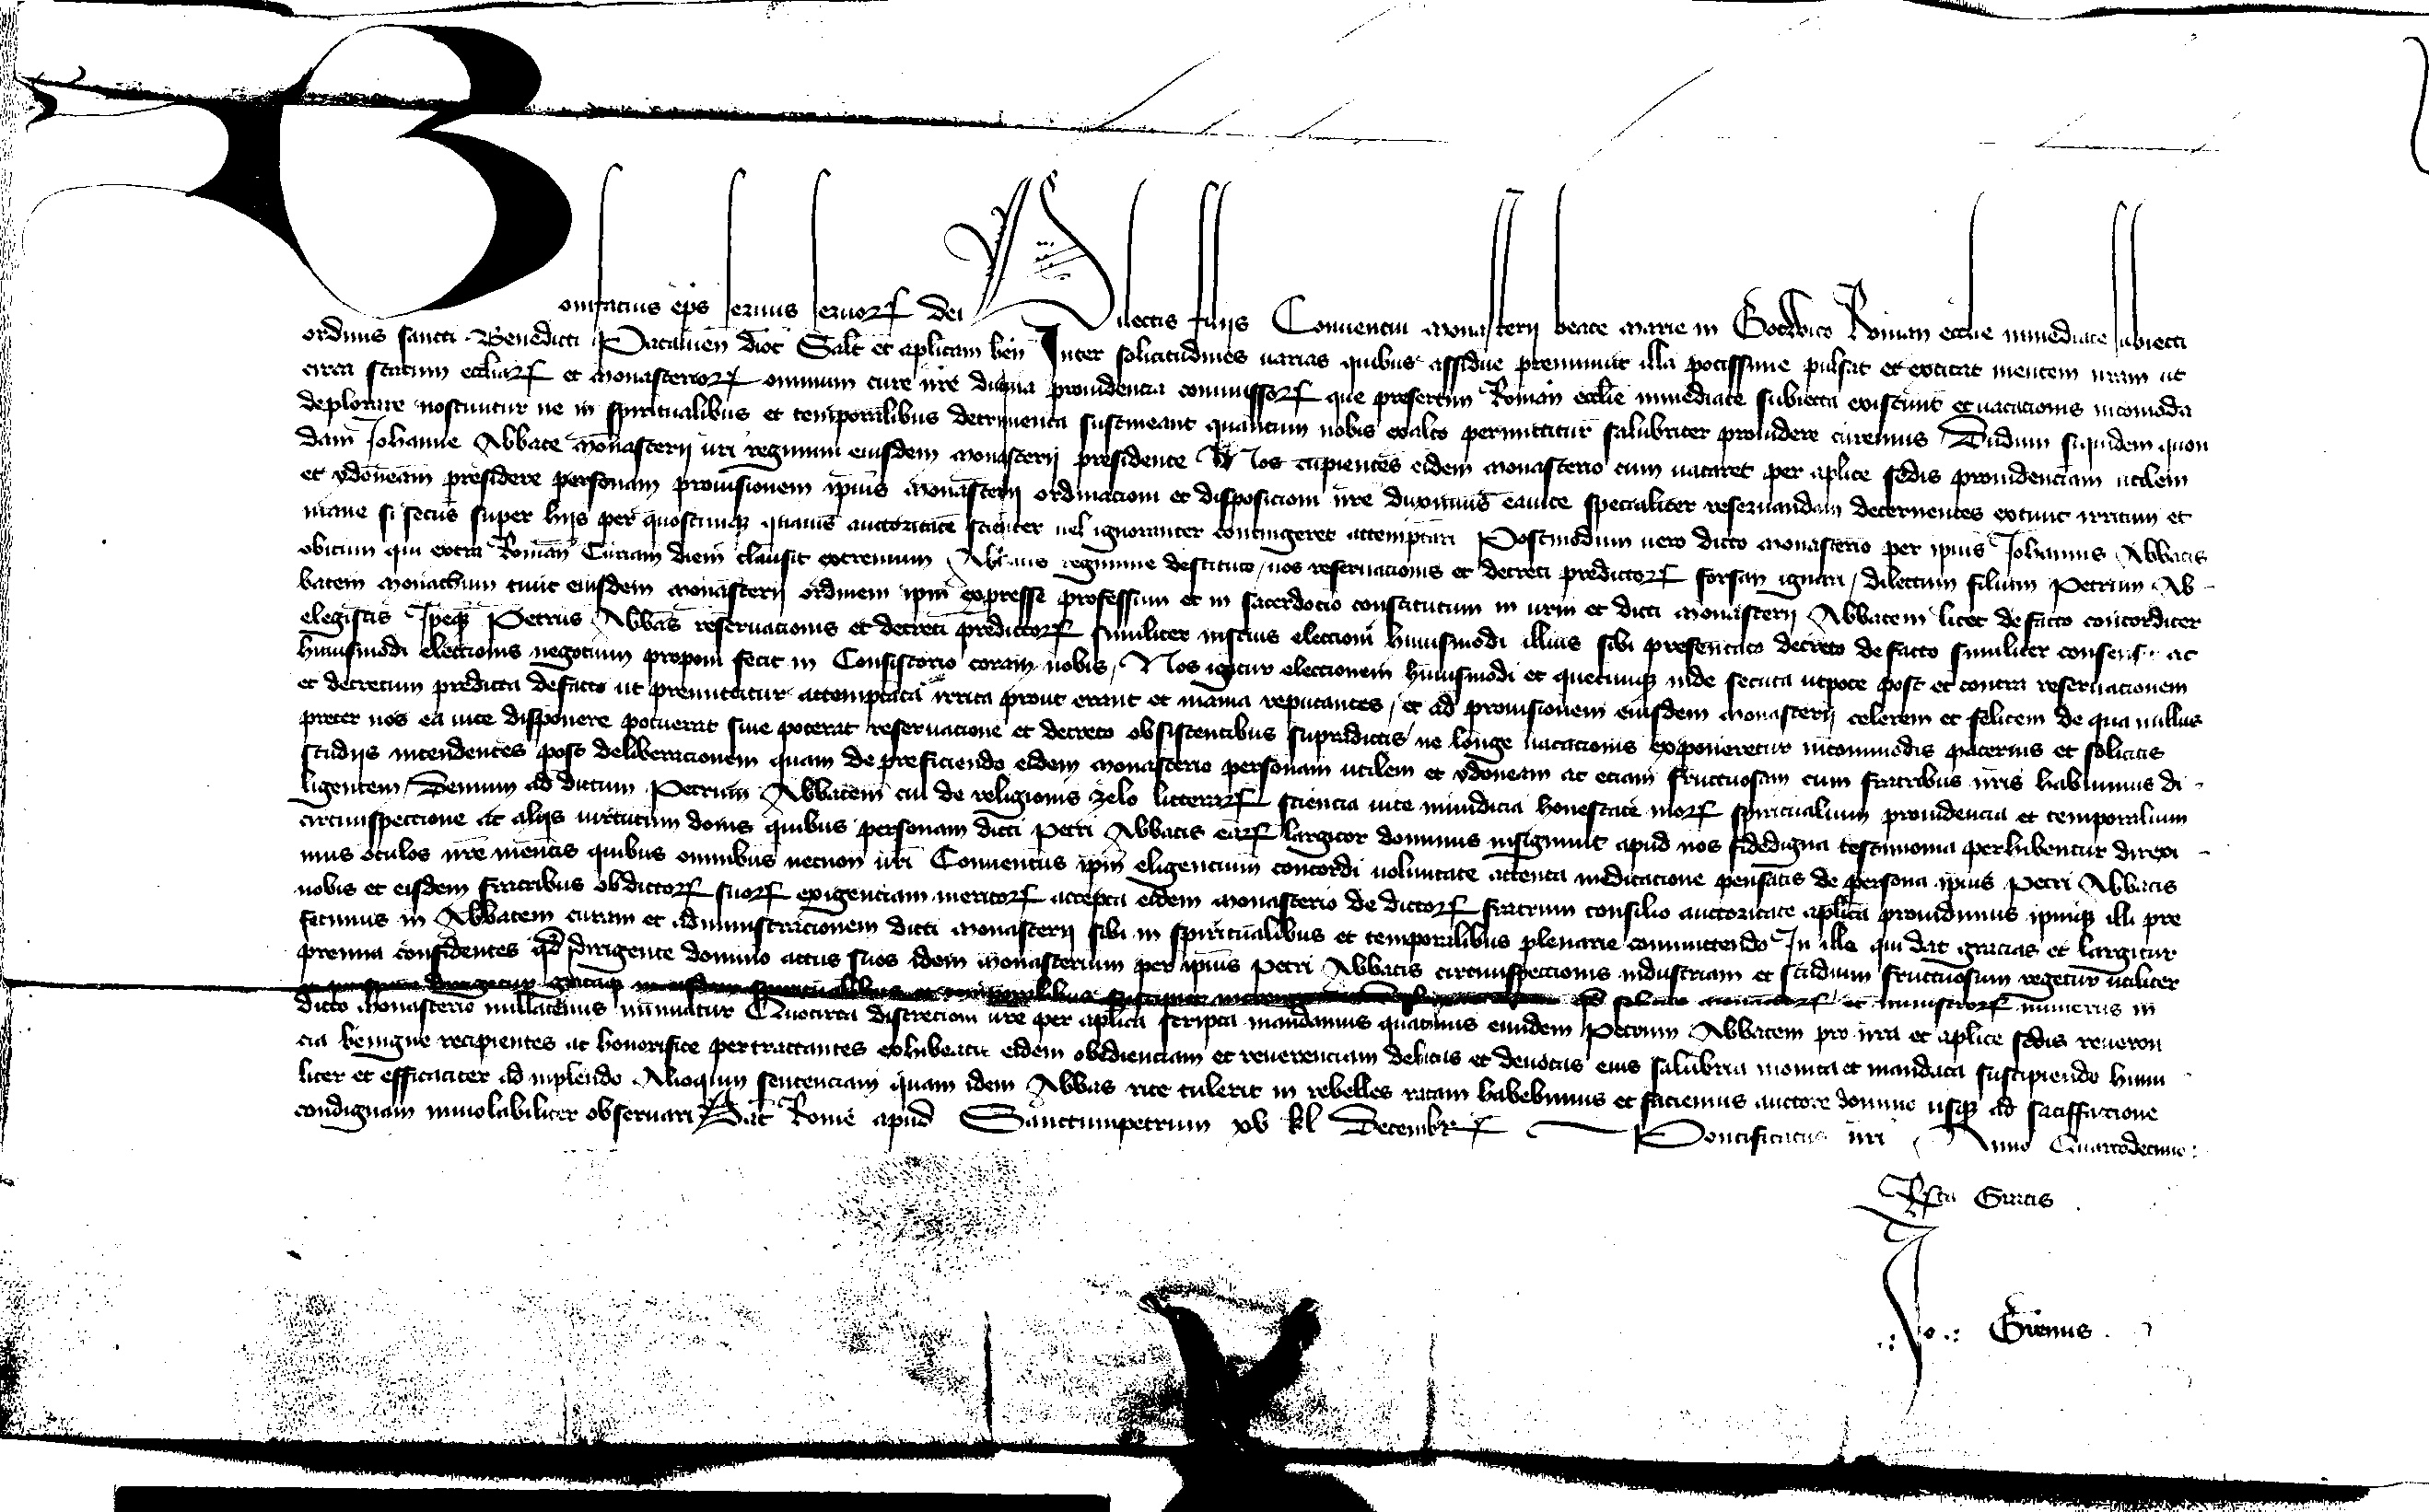 Bonifacius eps seruus seruorꝝ dei Dilectis filijs Conuentui monasterij beate Marie in Gotwico Roman ecclie immediate subiecti
ordinis sancti Benedicti Patauien dioc Salt et aplicam ben Inter solicitudines uarias quibus assidue premimur illa potissime pulsat et excitat mentem nram ut
circa statum eccliarꝝ et monasteriorꝝ omnium cure nre diuina prouidencia commissorꝝ que presertim Roman ecclie immediate subiecta existunt et uacacionis incomoda
deplorare noscuntur ne in spiritualibus et temporalibus detrimenta sustineant quantum nobis exalto permittitur salubriter prouidere curemus Dudum siquidem quon
dam Johanne Abbate monasterij uri regimini eiusdem monasterij presidente Nos cupientes eidem monasterio cum uacaret per aplice sedis prouidenciam utilem
et ydoneam presidere personam prouisionem ipius monasterij ordinacioni et disposicioni nre duximus eauice specialiter reseruandam decernentes extunc irritum et
inane si secus super hijs per quoscumqꝫ quauis auctoritate scienter uel ignoranter contingeret attemptari Postmodum uero dicto monasterio per ipius Johannis Abbatis
obitum qui extra Roman Curiam diem clausit extremum Abbatis regimine destituto nos reseruacionis et decreti predictorꝝ forsan ignari dilectum filium Petrum Ab
batem monachum tunc eiusdem monasterij ordinem ipm expresse professum et in sacerdocio constitutum in urm et dicti monasterij Abbatem licet de facto concorditer
elegistis Ipeqꝫ Petrus Abbas reseruacionis et decreti predictorꝝ similiter inscius electioni huiusmodi illius sibi presentato decreto de facto similiter consensit ac
huiusmodi electionis negotium proponi fecit in Consistorio coram nobis Nos igitur electionem huiusmodi et quecumqꝫ inde secuta utpote post et contra reseruacionem
et decretum predicta defacto ut premittitur attemptata irrita prout erant et inania reputantes et ad prouisionem eiusdem monasterij celerem et felicem de qua nullus
preter nos ea uice disponere potuerat siue poterat reseruacione et decreto obsistentibus supradictis ne longe uacacionis exponeretur incommodis paternis et solicitis
studijs intendentes post deliberacionem quam de preficiendo eidem monasterio personam utilem et ydoneam ac eciam fructuosam cum fratribus nris habuimus di
ligentem Demum ad dictum Petrum Abbatem cui de religionis zelo litterarꝝ sciencia uite mundicia honestate morꝝ spiritualium prouidencia et temporalium
circumspectione ac alijs uirtutum donis quibus personam dicti Petri Abbatis earꝝ largitor dominus insigniuit apud nos fidedigna testimonia perhibentur direxi
mus oculos nre mentis quibus omnibus necnon uri Conuentus ipm eligencium concordi uoluntate attenta meditacione pensatis de persona ipius Petri Abbatis
nobis et eisdem fratribus ob dictorꝝ suorꝝ exigenciam meritorꝝ accepta eidem monasterio de dictorꝝ fratrum consilio auctoritate aplica prouidimus ipumqꝫ illi pre
fecimus in Abbatem curam et administracionem dicti monasterij sibi in spiritualibus et temporalibus plenarie committendo In illo qui dat gracias et largitur
premia confidentes qd dirigente domino actus suos idem monasterium per ipius Petri Abbatis circumspectionis industriam et studium fructuosum regetur utiliter
et prospere dirigetur et ministrorꝝ numerus in
dicto monasterio nullatenus minuatur Quocirca discrecioni ure per aplica scripta mandamus quatinus eundem Petrum Abbatem pro nra et aplice sedis reueren
cia benigne recipientes ac honorifice pertractantes exhibeatis eidem obedienciam et reuerenciam debitas et deuotas eius salubria monita et mandata suscipiendo humi
liter et efficaciter ad inplendo Alioquin sentenciam quam idem Abbas rite tulerit in rebelles ratam habebimus et faciemus auctore domino usqꝫ ad satisfactione
condignam inuiolabiliter obseruari Dat Rome apud Sanctumpetrum xv kl Decembrꝭ Pontificatus nri Anno Quartodecimo
Rsta Gratis
Jo